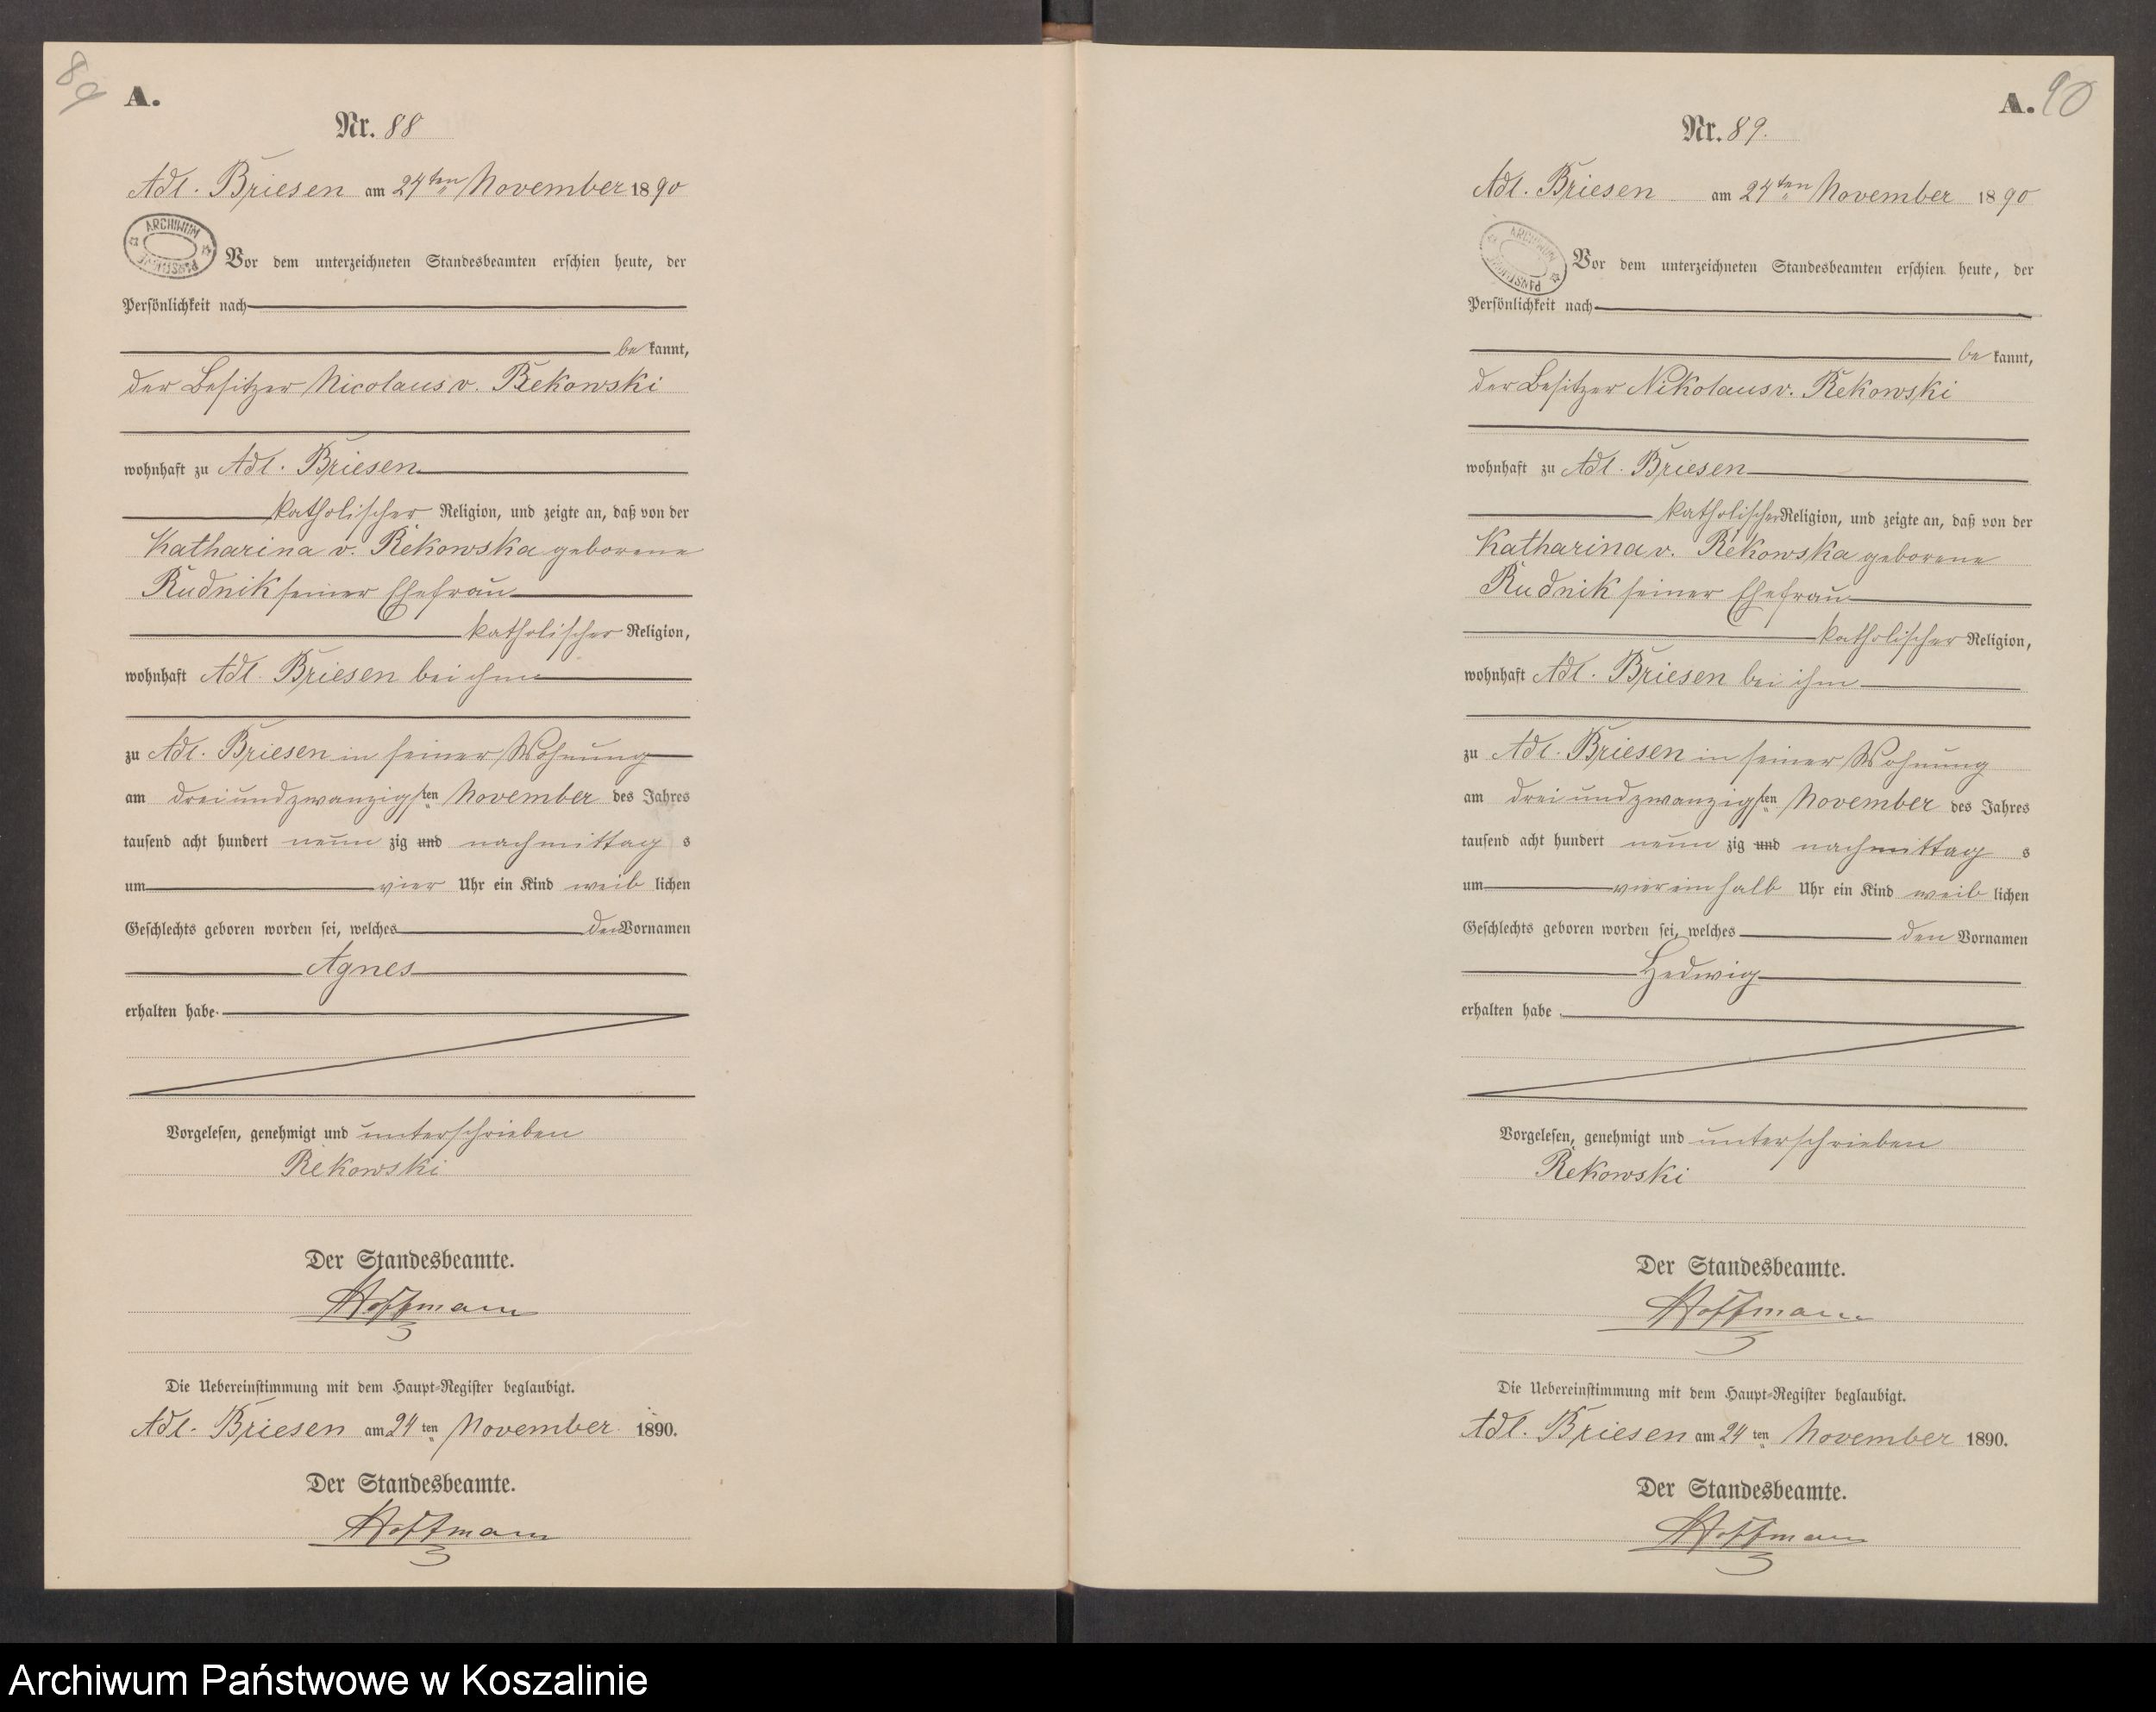 89
A.
Nr. 88
Adl. Briesen am 24ten November 1890
ARCHIWUM
Vor dem unterzeichneten Standesbeamten erschien heute, der
Persönlichkeit nach
be kannt,
der Besitzer Nicolaus v. Rekowski
wohnhaft zu Adl. Briesen
katholischer Religion, und zeigte an, daß von der
Katharina v. Rekowska geborene
Rudnik seiner Ehefrau
katholischer Religion,
wohnhaft Adl. Briesen bei ihm
zu Adl. Briesen in seiner Wohnung
am dreiundzwanzigsten November des Jahres
tausend acht hundert neun zig und nachmittag s
um vier Uhr ein Kind weib lichen
Geschlechts geboren worden sei, welches den Vornamen
Agnes
erhalten habe.
Vorgelesen, genehmigt und unterschrieben
Rekowski
Der Standesbeamte.
Hoffmann
Die Uebereinstimmung mit dem Haupt-Register beglaubigt.
Adl. Briesen am 24 ten November 1890.
Der Standesbeamte.
Hoffmann
A. 90
Nr. 89.
Adl. Briesen am 24ten November 1890
ARCHIWUM
Vor dem unterzeichneten Standesbeamten erschien heute, der
Persönlichkeit nach
be kannt,
der Besitzer Nikolaus v. Rekowski
wohnhaft zu Adl. Briesen
katholischer Religion, und zeigte an, daß von der
Katharina v. Rekowska geborene
Rudnik seiner Ehefrau
katholischer Religion,
wohnhaft Adl. Briesen bei ihm
zu Adl. Briesen in seiner Wohnung
am dreiundzwanzigsten November des Jahres
tausend acht hundert neun zig und nachmittag s
um viereinhalb Uhr ein Kind weib lichen
Geschlechts geboren worden sei, welches den Vornamen
Hedwig
erhalten habe.
Vorgelesen, genehmigt und unterschrieben
Rekowski
Der Standesbeamte.
Hoffmann
Die Uebereinstimmung mit dem Haupt-Register beglaubigt.
Adl. Briesen am 24 ten November 1890.
Der Standesbeamte.
Hoffmann
Archiwum Państwowe w Koszalinie